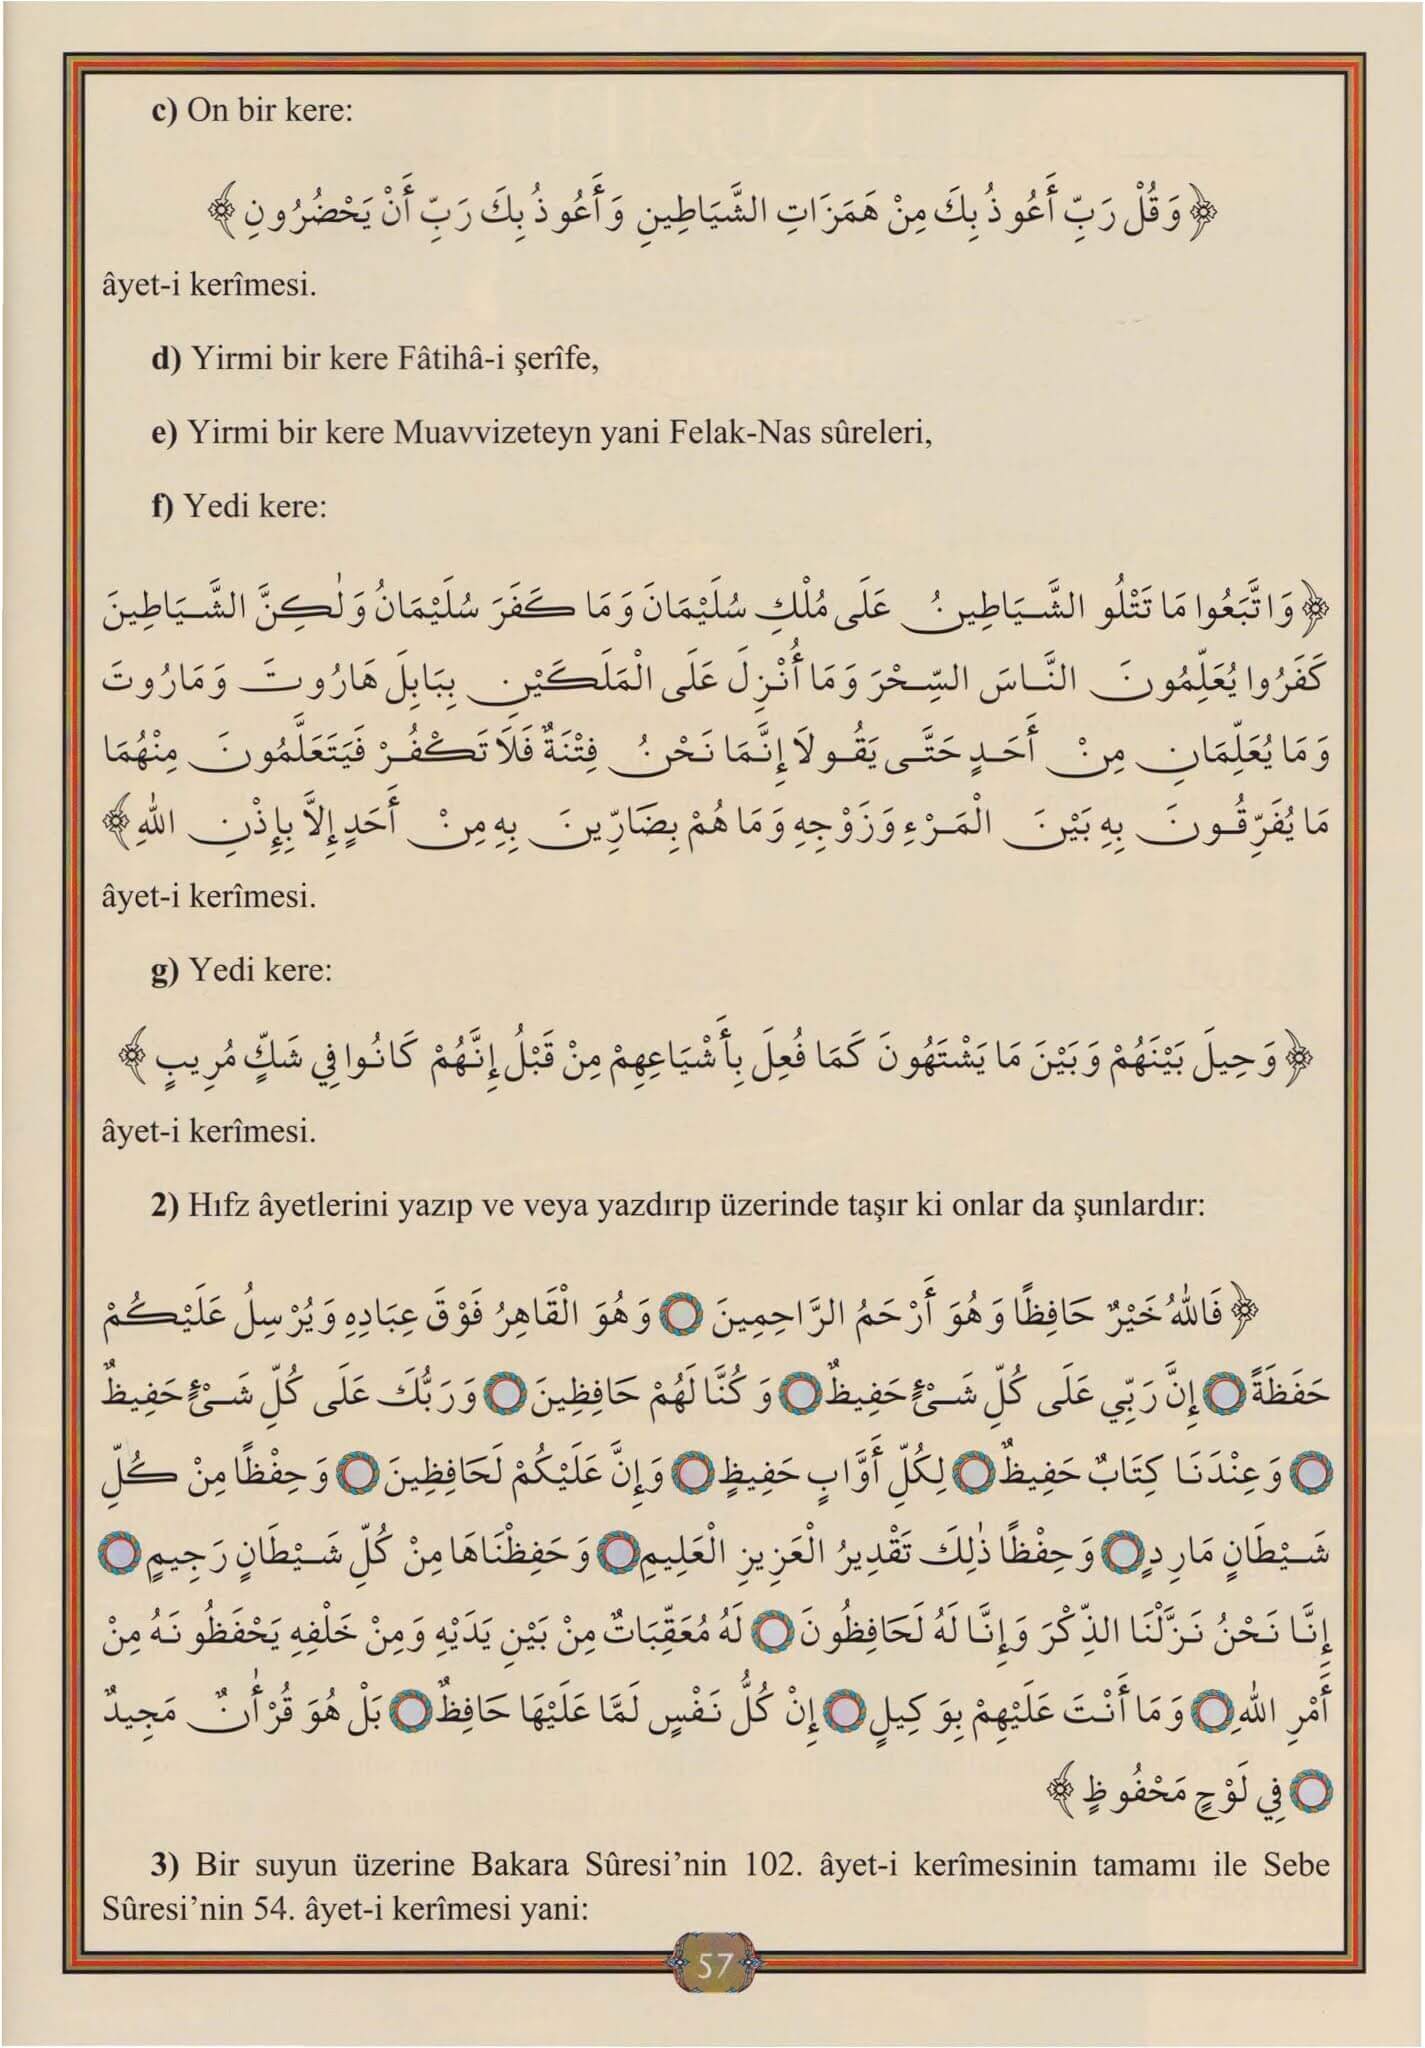 c) On bir kere:
﴿وَقُلْ رَبِّ أَعُوذُ بِكَ مِنْ هَمَزَاتِ الشَّيَاطِينِ وَأَعُوذُ بِكَ رَبِّ أَنْ يَحْضُرُونِ﴾
âyet-i kerîmesi.
d) Yirmi bir kere Fâtihâ-i şerîfe,
e) Yirmi bir kere Muavvizeteyn yani Felak-Nas sûreleri,
f) Yedi kere:
﴿وَاتَّبَعُوا مَا تَتْلُو الشَّيَاطِينُ عَلَى مُلْكِ سُلَيْمَانَ وَمَا كَفَرَ سُلَيْمَانُ وَلٰكِنَّ الشَّيَاطِينَ
كَفَرُوا يُعَلِّمُونَ النَّاسَ السِّحْرَ وَمَا أُنْزِلَ عَلَى الْمَلَكَيْنِ بِبَابِلَ هَارُوتَ وَمَارُوتَ
وَمَا يُعَلِّمَانِ مِنْ أَحَدٍ حَتَّى يَقُولَا إِنَّمَا نَحْنُ فِتْنَةٌ فَلَا تَكْفُرْ فَيَتَعَلَّمُونَ مِنْهُمَا
مَا يُفَرِّقُونَ بِهِ بَيْنَ الْمَرْءِ وَزَوْجِهِ وَمَا هُمْ بِضَارِّينَ بِهِ مِنْ أَحَدٍ إِلَّا بِإِذْنِ اللهِ﴾
âyet-i kerîmesi.
g) Yedi kere:
﴿وَحِيلَ بَيْنَهُمْ وَبَيْنَ مَا يَشْتَهُونَ كَمَا فُعِلَ بِأَشْيَاعِهِمْ مِنْ قَبْلُ إِنَّهُمْ كَانُوا فِي شَكٍّ مُرِيبٍ﴾
âyet-i kerîmesi.
2) Hıfz âyetlerini yazıp ve veya yazdırıp üzerinde taşır ki onlar da şunlardır:
﴿فَاللهُ خَيْرٌ حَافِظًا وَهُوَ أَرْحَمُ الرَّاحِمِينَ ۝ وَهُوَ الْقَاهِرُ فَوْقَ عِبَادِهِ وَيُرْسِلُ عَلَيْكُمْ
حَفَظَةً ۝ إِنَّ رَبِّي عَلَى كُلِّ شَيْءٍ حَفِيظٌ ۝ وَكُنَّا لَهُمْ حَافِظِينَ ۝ وَرَبُّكَ عَلَى كُلِّ شَيْءٍ حَفِيظٌ
۝ وَعِنْدَنَا كِتَابٌ حَفِيظٌ ۝ لِكُلِّ أَوَّابٍ حَفِيظٍ ۝ وَإِنَّ عَلَيْكُمْ لَحَافِظِينَ ۝ وَحِفْظًا مِنْ كُلِّ
شَيْطَانٍ مَارِدٍ ۝ وَحِفْظًا ذٰلِكَ تَقْدِيرُ الْعَزِيزِ الْعَلِيمِ ۝ وَحَفِظْنَاهَا مِنْ كُلِّ شَيْطَانٍ رَجِيمٍ ۝
إِنَّا نَحْنُ نَزَّلْنَا الذِّكْرَ وَإِنَّا لَهُ لَحَافِظُونَ ۝ لَهُ مُعَقِّبَاتٌ مِنْ بَيْنِ يَدَيْهِ وَمِنْ خَلْفِهِ يَحْفَظُونَهُ مِنْ
أَمْرِ اللهِ ۝ وَمَا أَنْتَ عَلَيْهِمْ بِوَكِيلٍ ۝ إِنْ كُلُّ نَفْسٍ لَمَّا عَلَيْهَا حَافِظٌ ۝ بَلْ هُوَ قُرْأٰنٌ مَجِيدٌ
۝ فِي لَوْحٍ مَحْفُوظٍ﴾
3) Bir suyun üzerine Bakara Sûresi’nin 102. âyet-i kerîmesinin tamamı ile Sebe
Sûresi’nin 54. âyet-i kerîmesi yani:
57